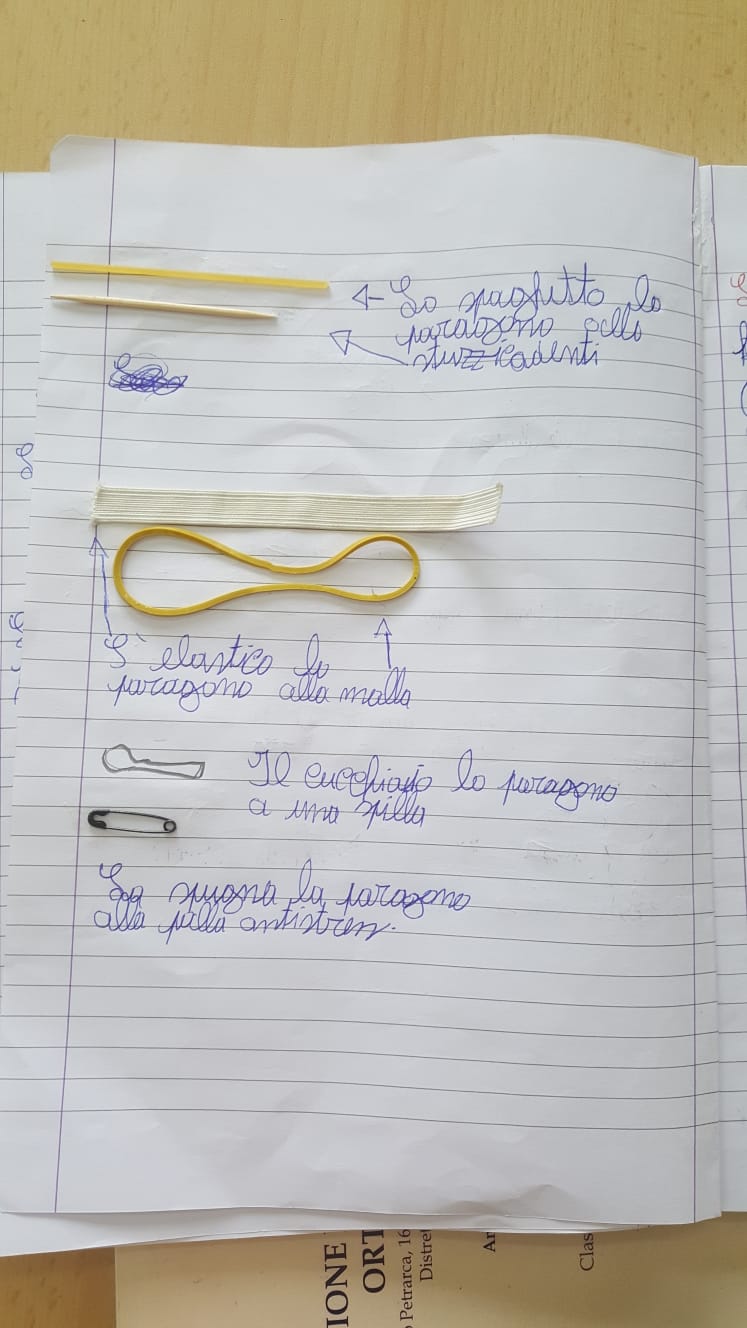 Lo spaghetto lo
paragono allo
stuzzicadenti
L'elastico lo
paragono alla molla
Il cucchiaio lo paragono
a una spilla
La spugna la paragono
alla palla antistress.
IONE
ORT
Petrarca, 16
Distre
An
Clas